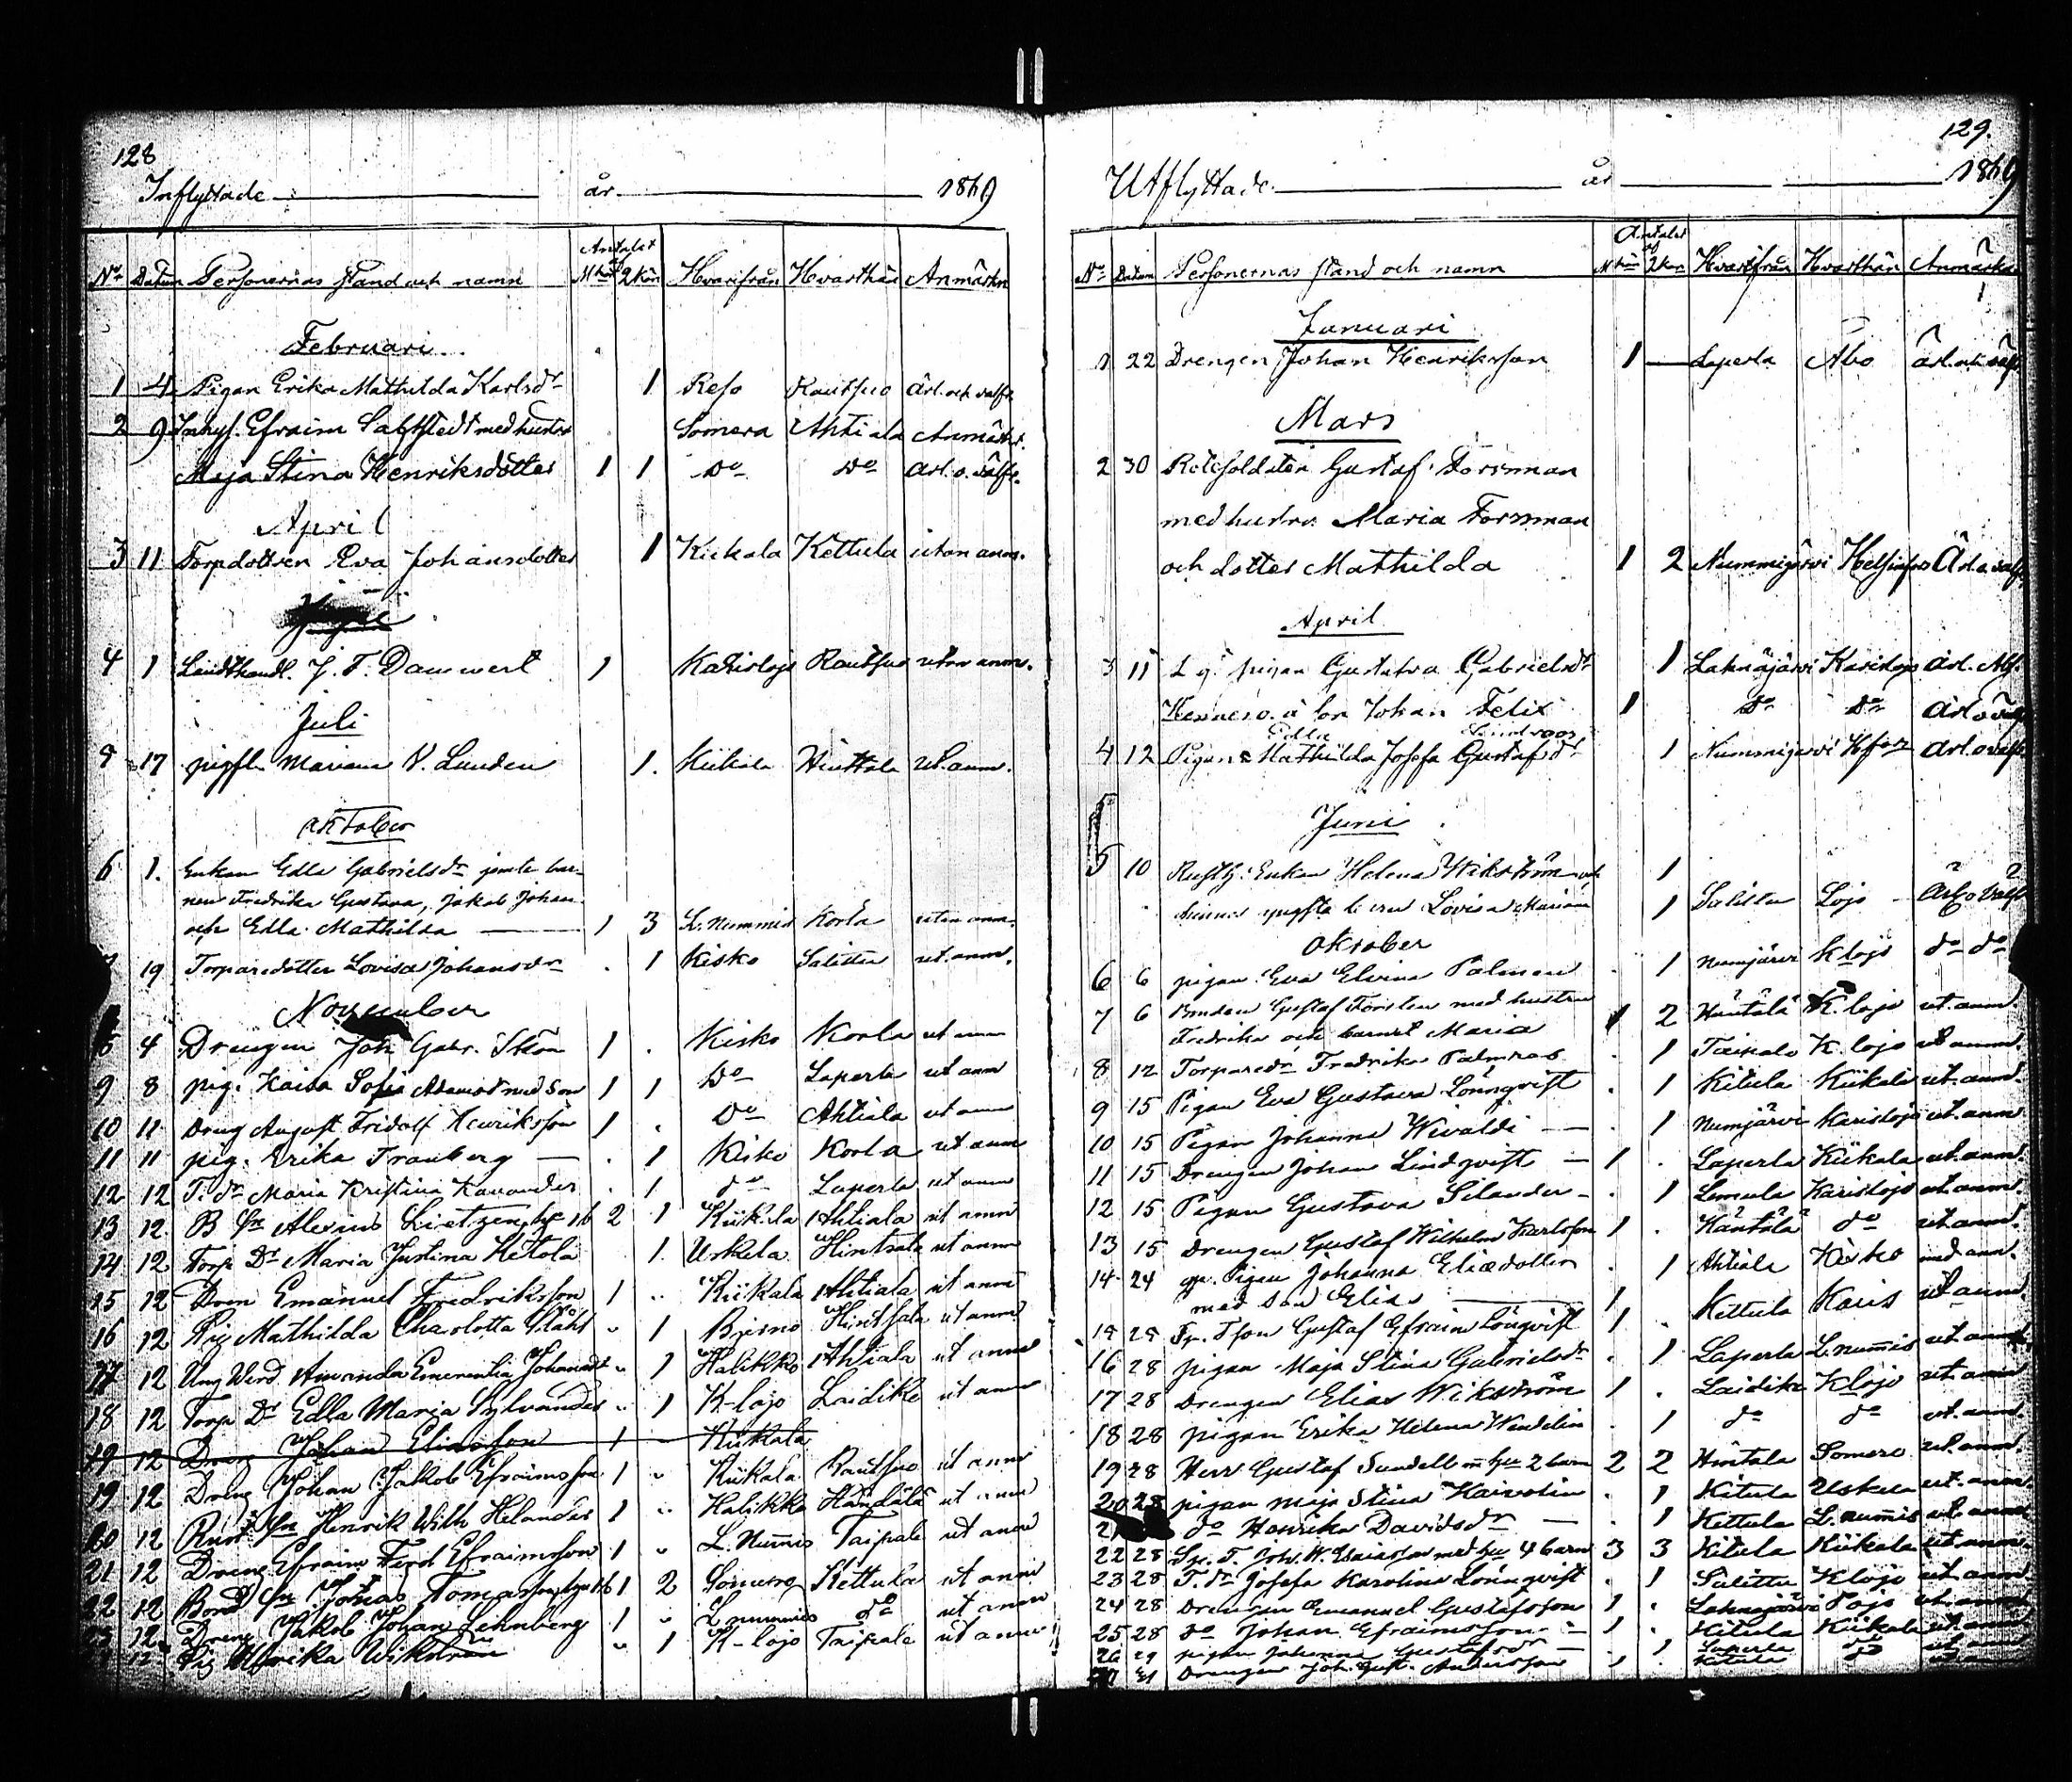 128
Inflyttade år 1869
No Datum Personernas stand och namn Antalet af M kön 2 kön Hvarifrån Hvarthän Anmärkn
Februari
1 4 Pigan Erika Mathilda Karlsdr 1 Reso Rautsuo ärl. och välfr.
2 9 Inhys. Efraim med hustru Somero Ahtiala Anmärkt.
Maja Stina Henriksdotter 1 1 Do Do ärl. o. välfr.
April
3 11 Torpdottren Eva Johansdotter 1 Kiikala Kettula utan anm.
4 1 Landthandl. J. F. Danwert 1 Karislojo Rautsuo utan anm.
Juli
17 pigfl. Mariana V. Lunden 1. Kiikala Hintsala ut. anm.
Oktober
6 1. Enkan Edla Gabrielsdr jemte bar-
nen Fredrika Gustava, Jakob Johan
och Edla Mathilda 1 3 L. Nummis Korla utan anm.
19 Torparedotter Lovisa Johansdr . 1 Kisko Salittu ut. anm.
November
4 Drengen Joh Gabr. Skön 1 . Kisko Korla ut anm
9 8 pig. Kaisa Sofia Adamsd med son 1 1 Do Laperla ut anm
10 11 Dreng August Fridolf Henriksson 1 . Do Ahtiala ut anm
11 11 pig. Erika Tranberg . 1 Kisko Korla ut anm
12 12 T. dr Maria Kristina Kanander . 1 do Laperla ut anm
13 12. B Sn Alexius 2 1 Kiikala Ahtiala ut anm
14 12 Torp Dr Maria Justina Ketola 1. Uskela Hintsala ut anm
15 12 Dren Emanuel Fredriksson 1 " Kiikala Ahtiala ut anm
16 12 Pig Mathilda Charlotta Ståhl " 1 Bjerno Hintsala ut anm
17 12 Ung Werd. Amanda Emerentia Johansdr " 1 Halikko Ahtiala ut anm
18 12 Torp Dr Edla Maria Sylvander " 1 K-lojo Laidike ut anm
19 12 Dreng Johan Eliasson 1 Kiikala
19 12 Dreng Johan Jakob Efraimsson 1 " Kiikala Rautsuo ut anm
20 12 Rust. Sn Henrik Wilh Helander 1 " Halikko Händälä ut anm
21 12 Dreng Efraim Ferd Efraimsson 1 " L. Numis Taipale ut anm
22 12 Bond Sn Johas Tomasson 1 2 Somero Kettula ut anm
12 Dreng Jakob Johan Lehnberg 1 " L nummis do ut anm
12 Pig Ulrika Wikström " 1 K-lojo Taipale ut anm
129.
Utflyttade år 1869
No Datum Personernas stand och namn Antalet af M kön 2 kön Hvarifrån Hvarthän Anmärkn
Januari
1 22 Drengen Johan Henriksson 1 Laperla Åbo ärl. och välfr
Mars
2 30 Rotesoldaten Gustaf Forsman
med hustru Maria Forsman
och dotter Mathilda 1 2 Nummijärvi Helsinfors Ärl o välfr
April
3 11 L. g. pigan Gustava Gabrielsdr 1 Lahnajärvi Karislojo ärl.
Hennes o. ä. son Johan Felix 1 Do Do ärl o välfr
Edla Lindroos
4 12 Pigan Mathilda Josefa Gustafsdr 1 Nummijärvi Hfors ärl. o välfr
5
Juni
5 10 Rusth: Enkan Helena Wikström och 1
hennes yngsta barn Lovisa Mariana 1 Salittu Lojo Ärl o välfr
Oktober
6 6 pigan Eva Elvina Palmen . 1 Numjärvi K lojo do do
7 6 Bonden Gustaf Forsten med hustru
Fredrika och barnet Maria 1 2 Häntälä K. lojo ut. anm.
8 12 Torparedr Fredrika Palmros . 1 Taipale K. lojo ut anm.
9 15 Pigan Eva Gustava Lönnqvist . 1 Kitula Kiikala ut. anm.
10 15 Pigan Johanna Wivaldi . 1 Numjärvi Karislojo ut. anm
11 15 Drengen Johan Lindqvist 1 . Laperla Kiikala ut. anm.
12 15 Pigan Gustava Silander . 1 Lemula Karislojo ut. anm.
13 15 Drengen Gustaf Wilhelm Karlsson 1 . Häntälä do ut anm.
14 24 gp. Pigan Johanna Eliædotter . 1 Ahtiala Kisko med anm.
med son Elias 1
15 28 Tp. Tson Gustaf Efraim Lönqvist 1 . Kettula Karis ut anm
16 28 pigan Maja Stina Gabrielsdr . 1 Laperla L. numis ut. anm.
17 28 Drengen Elias Wikström 1 . Laidike K lojo ut. anm
18 28 pigan Erika Helena Wendelin . 1 do do ut. anm.
19 28 Herr Gustaf Sundell m hu 2 barn 2 2 Hintala Somero ut. anm.
20 28 pigan Maja Stina Kaivolin . 1 Kitula Uskela ut. anm
21 do Henrika Davidsdr 1 Kettula L. numis ut. anm
22 28 Sp. T. Joh. W. Esaiasson med hu 4 barn 3 3 Kitula Kiikala ut. anm.
23 28 T. dr Josefa Karolina Lönnqvist . 1 Salittu K lojo ut. anm.
24 28 Drengen Emanuel Gustafsson 1 . Lahnajärvi Pojo ut. anm
25 28 do Johan Efraimsson 1 . Kitula Kiikala ut. anm
26 29 pigan Johanna Gustafsdr . 1 Laperla do ut. anm
31 Drengen Joh. Gust. Andersson 1 . Kitula